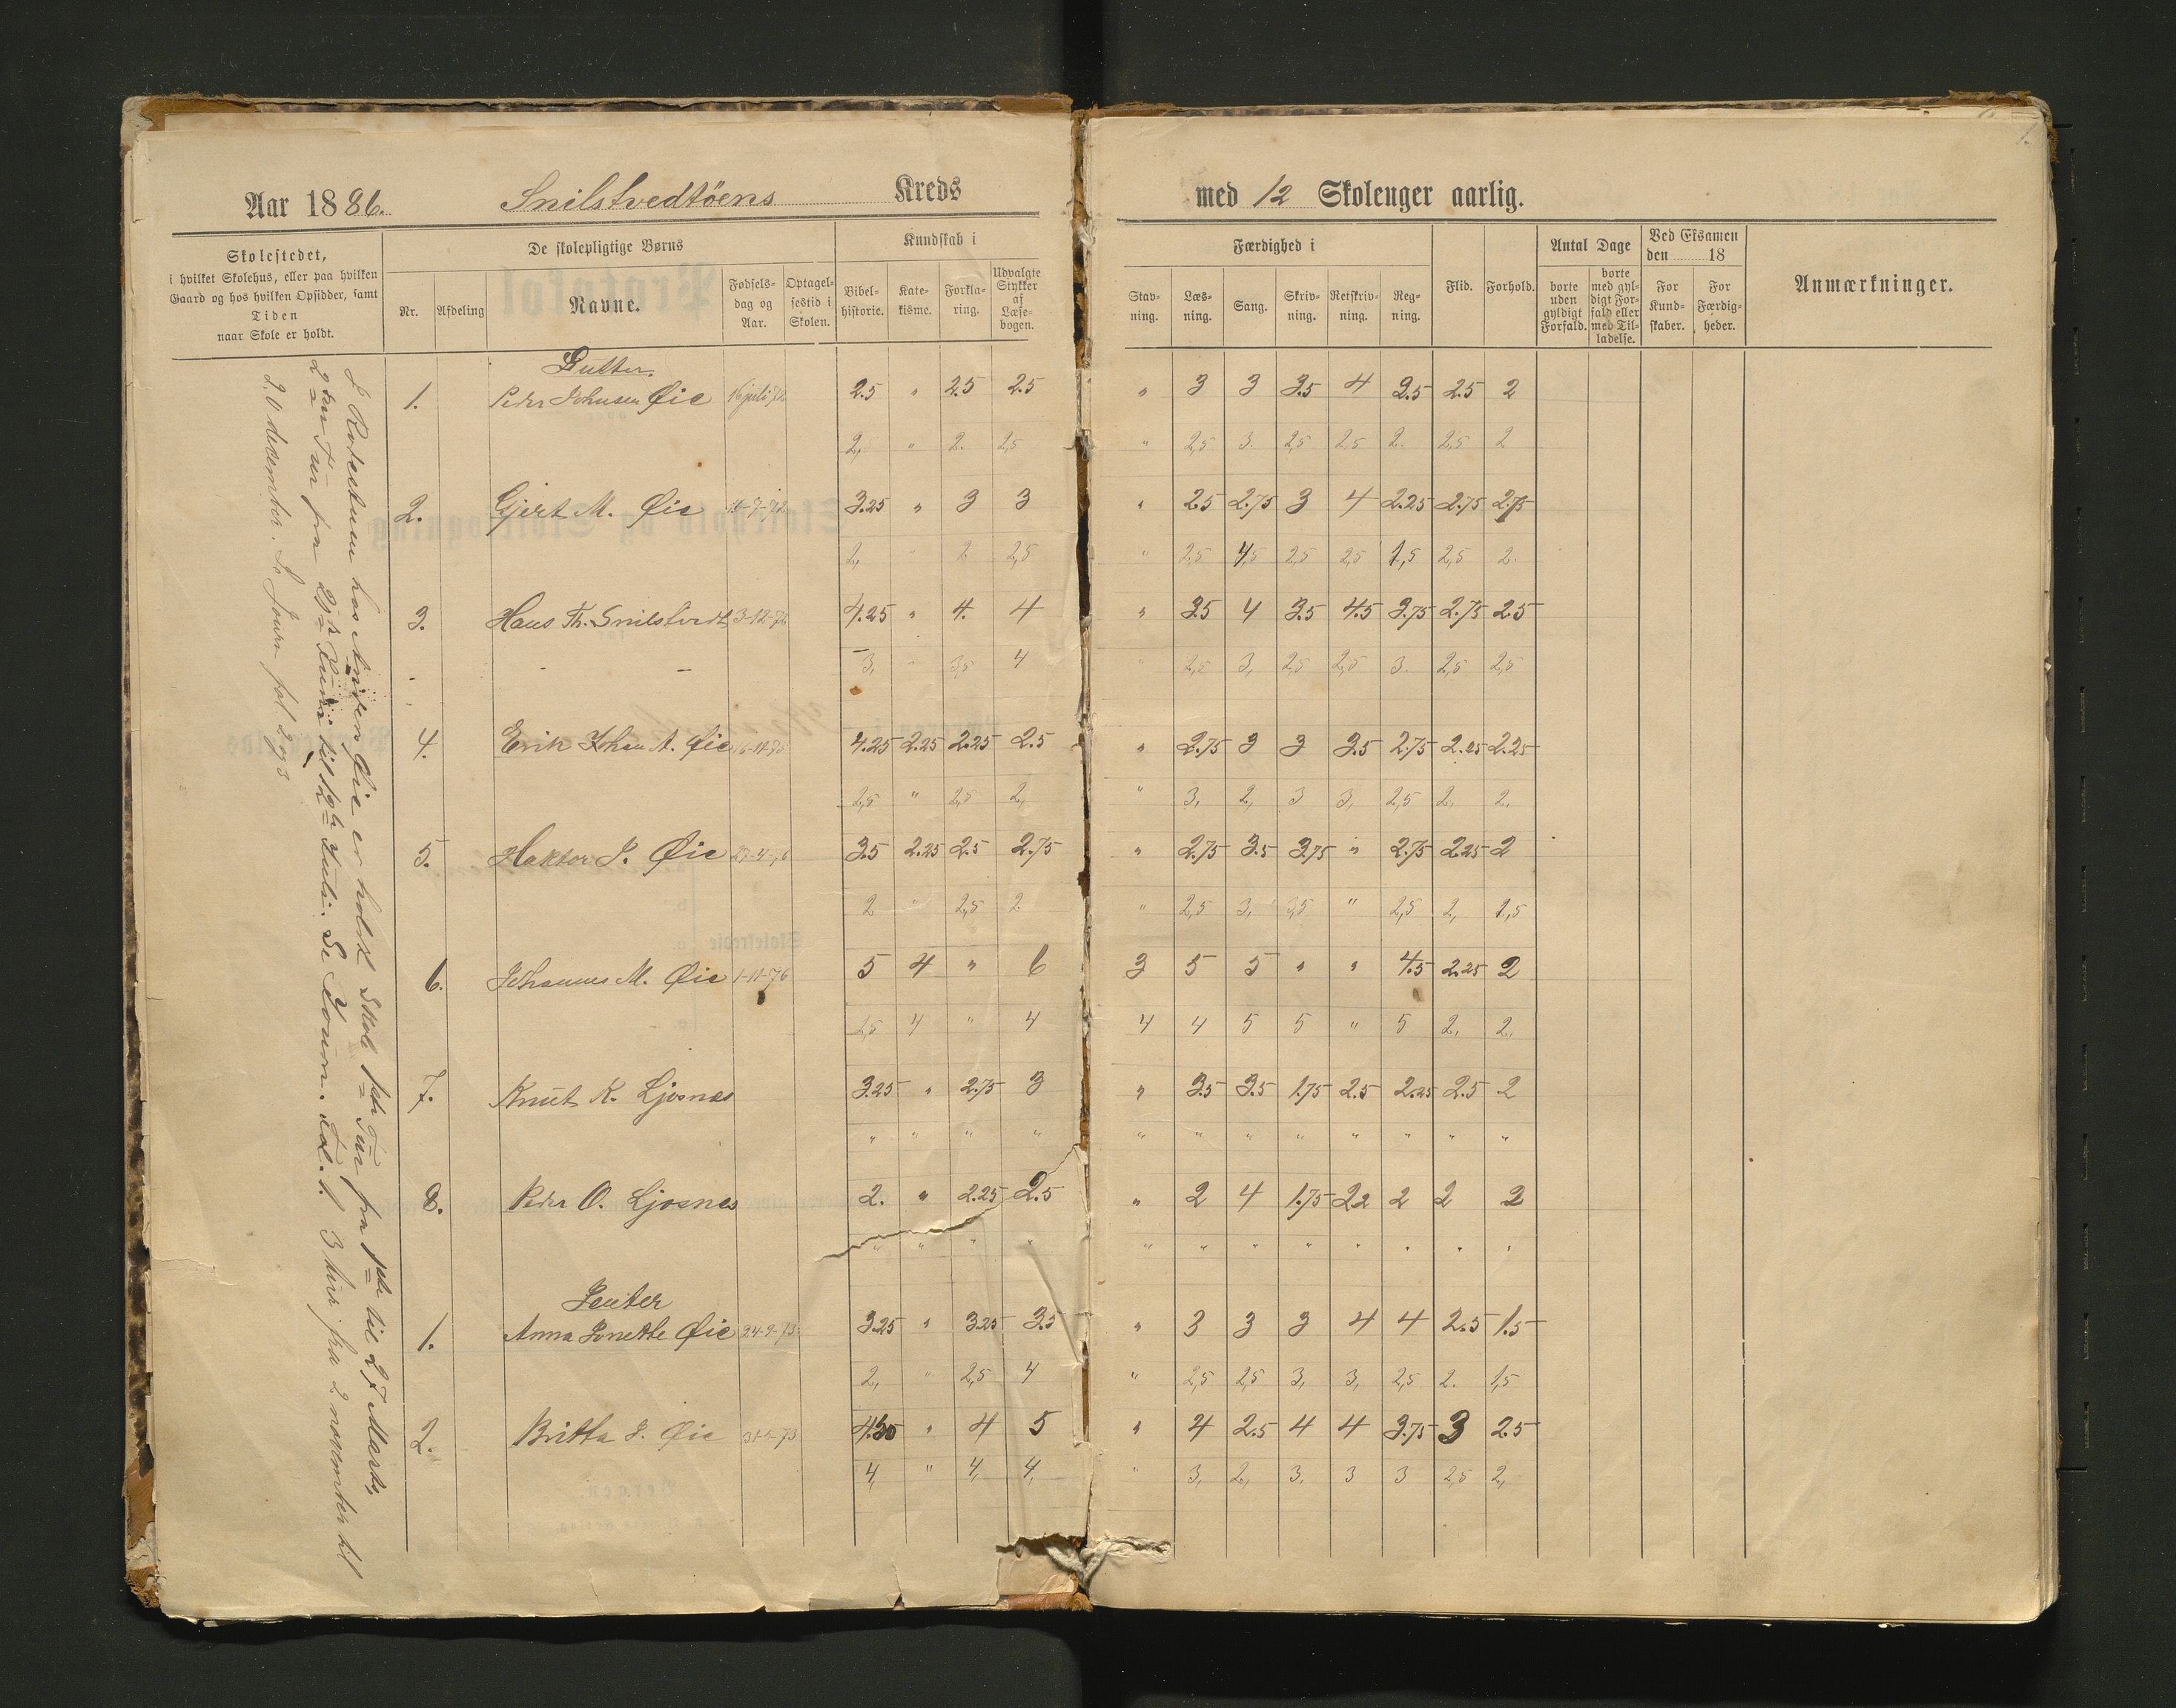 Aar 1886. Snilstvedtöens Kreds med 12 Skoleuger aarlig.
Skolestedet,
i hvilket Skolehus, eller paa hvilken
Gaard og hos hvilken Opsidder, samt
Tiden
naar Skole er holdt.
De skolepligtige Børns
Nr. Afdeling Navne. Fødsels-dag og Aar. Optagel-sestid i Skolen.
Kundskab i
Bibel-historie. Kate-kisme. Forkla-ring. Udvalgte Stykker af Læse-bogen.
Færdighed i
Stav-ning. Læs-ning. Sang. Skriv-ning. Retskriv-ning. Reg-ning.
Flid. Forhold.
Antal Dage
borte uden gyldigt Forfald. borte med gyl-digt For-fald eller med Til-ladelse.
Ved Eksamen
den 18
For Kund-skaber. For Færdig-heder.
Anmærkninger.
er holdt Skole 1ste Tur fra 1ste til 27 Marts,
2den Tur fra til 12te Juli. Se Journ. 3 fra 2 november til
20 desember. Se Journ
Gutter.
1. Peder Johnsen Øie 16 juli 72 2.5 " 2.5 2.5 " 3 3 3.5 4 2.5 2.5 2
2, " 2. 2,5 " 2,5 3. 2,5 2,5 2. 2,5 2
2. Gjert M. Øie 3.25 " 3 3 " 2.5 2.75 3 4 2.25 2.75 2.75
2, " 2 2,5 " 2,5 4,5 2,5 2,5 1,5 2,5 2.
3. Hans Th. Snilstvedt 3-12-72 4.25 " 4. 4 " 3.5 4 3.5 4.5 3.75 2.75 2.5
3, " 3,5 4 " 2,5 3, 2,5 2,5 3. 2,5 2,5
4. Erik Johan A. Øie 4.25 2.25 2.25 2.5 " 2.75 3 3 3.5 2.75 2.25 2.25
2,5 " 2,5 2, " 3, 2, 3 3, 2,5 2, 2,
5. Haktor J. Øie 3.5 2.25 2.5 2.75 " 2.75 3.5 3.75 " 2.75 2.25 2
2 " 2,5 2 " 2,5 3, 3,5 " 2,5 2, 1,5
6. Johannes M. Øie 1-11-76 5 4 " 6 3 5 5 " " 4.5 2.25 2
2,5 4 " 4 4 4 5 5 " 5 2, 2,
7. Knut K. Ljosnes 3.25 " 2.75 3 " 3.5 3.5 1.75 2.5 2.25 2.5 2
" " " " " " " " " " " "
8. Peder O. Ljosnes 2. " 2.25 2.5 " 2 4 1.75 2.2 2 2 2
" " " " " " " " " " " "
Jenter
1. Anna Jonette Øie 24-9-73 3.25 " 3.25 3.5 " 3 3 3 4 4 2.5 1.5
2, " 2,5 4 " 2,5 2,5 3, 3, 2,5 2. 1,5
2. Britta J. Øie 4.50 " 4 5 " 4 2.5 4 4 3.75 3 2.5
4, " 4, 4, " 3, 2, 3, 3 3 2,5 2,